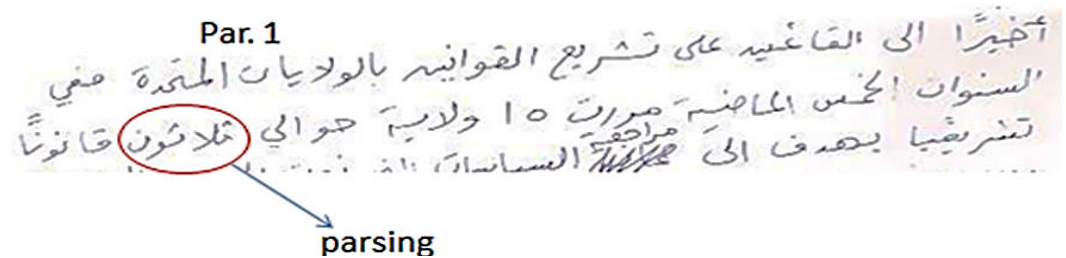 Par. 1
أخيرًا الى القائمين على تشريع القوانين بالولايات المتحدة ففي
السنوات الخمس الماضية مررت ١٥ ولاية حوالي ثلاثون قانونًا
تشريعيا يهدف الى مراجعة السياسات
parsing